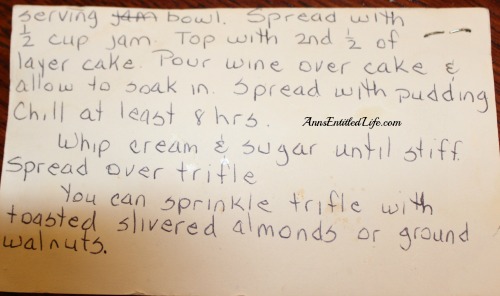 serving bowl. Spread with
½ cup jam. Top with 2nd ½ of
layer cake. Pour wine over cake &
allow to soak in. Spread with pudding
Chill at least 8 hrs.
AnnsEntitledLife.com
Whip cream & sugar until stiff.
Spread over trifle
You can sprinkle trifle with
toasted slivered almonds or ground
walnuts.